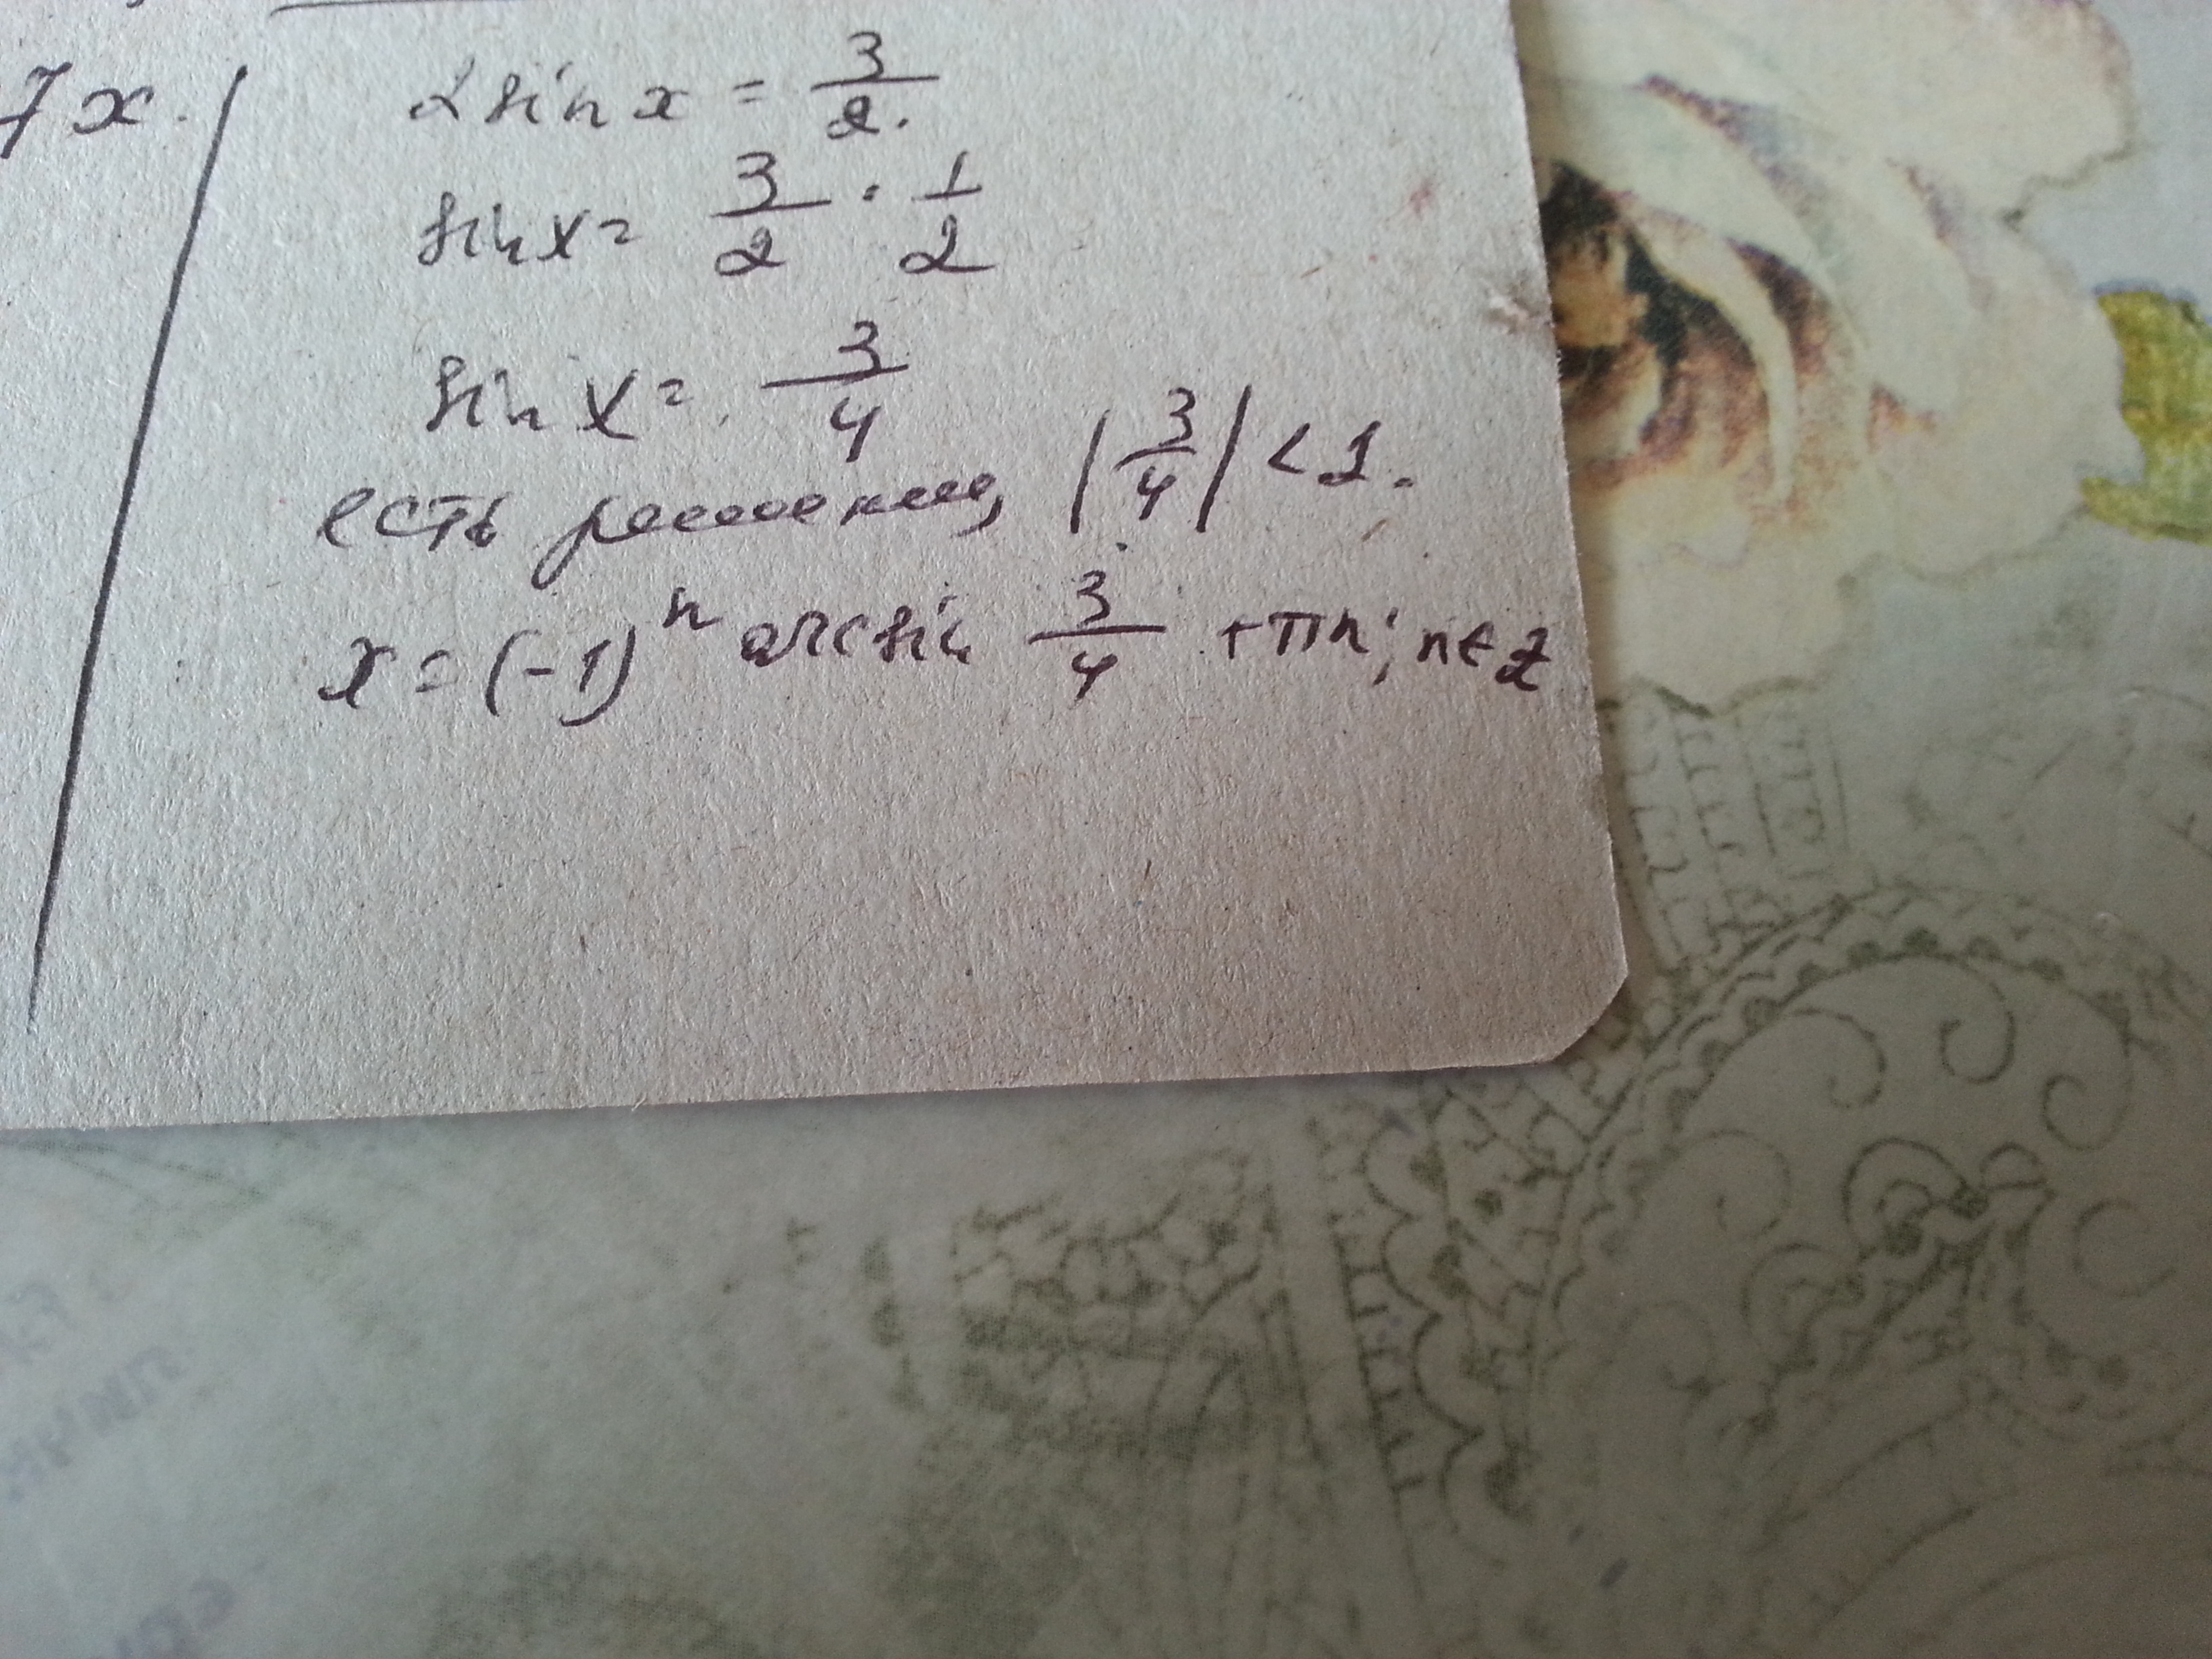 7x.
2 sin x = 3/2.
sin x = 3/2 · 1/2
sin x = 3/4
есть решение, |3/4| < 1.
x = (-1)^n arcsin 3/4 + πn; n ∈ Z